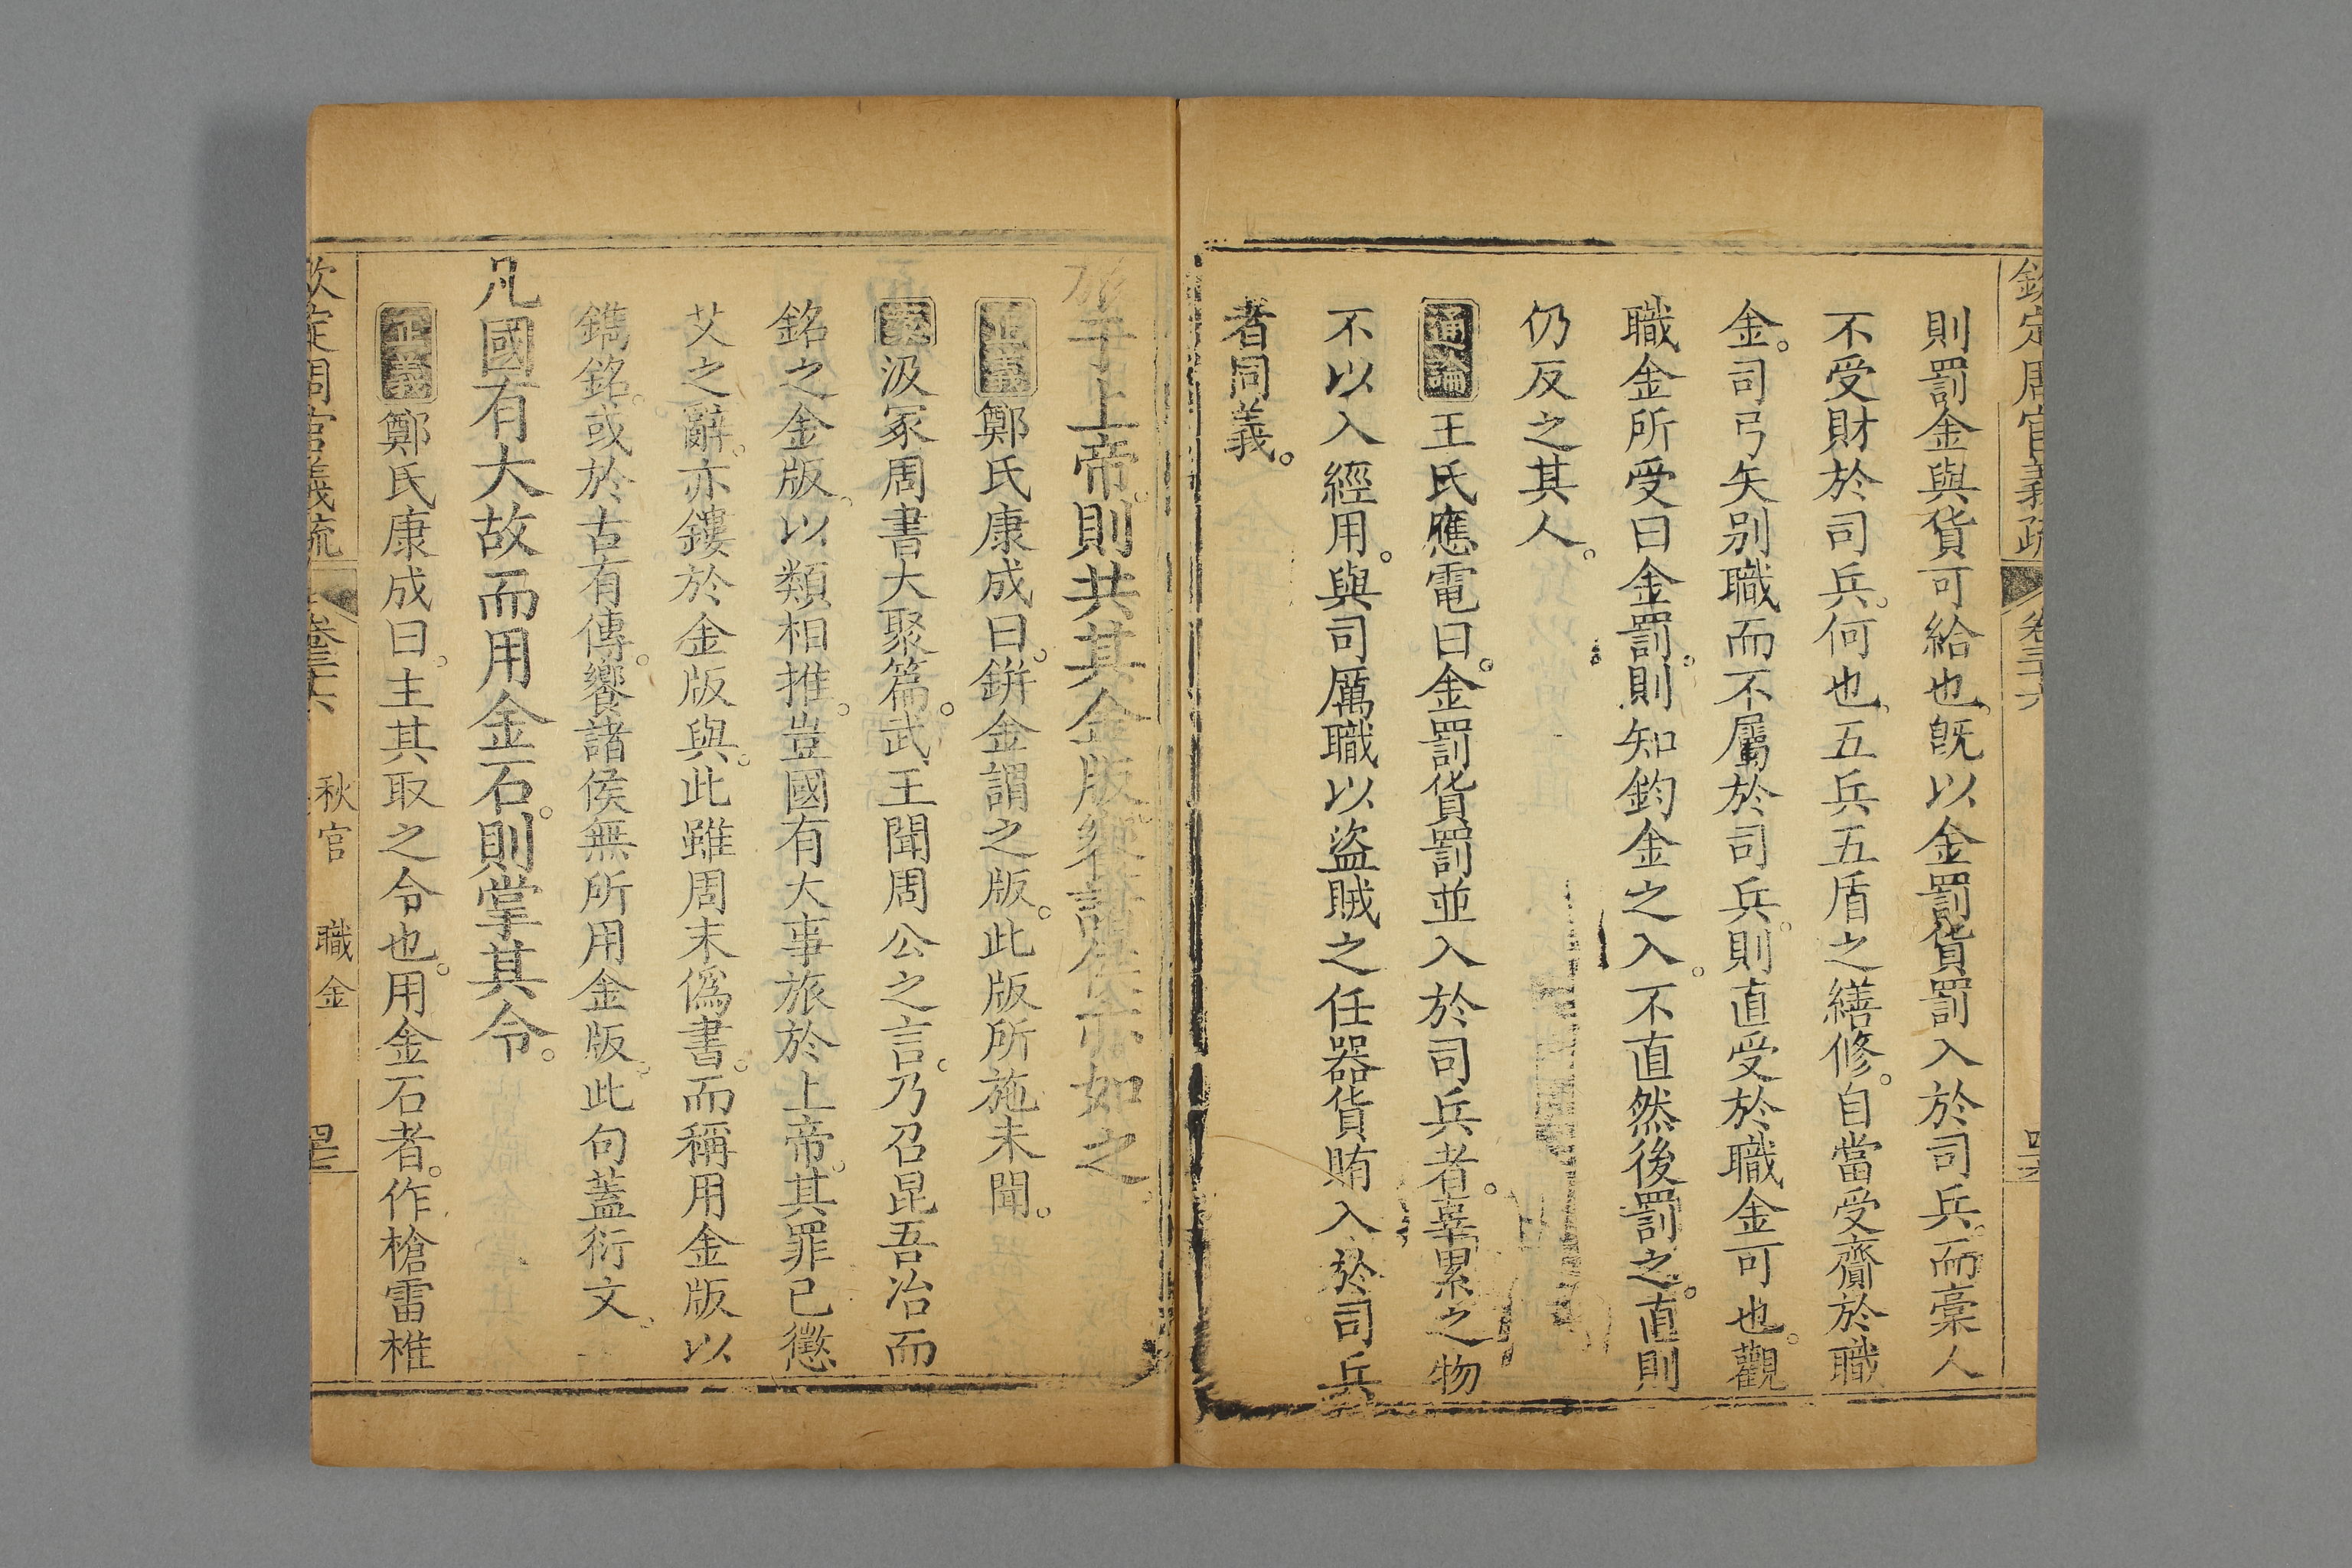 欽定周官義疏 卷三十六
則罰金與貨可給也、旣以金罰貨罰入於司兵、而槀人
不受財於司兵、何也、五兵五盾之繕修。自當受齎於職
金。司弓矢别職而不屬於司兵。則直受於職金可也。觀
職金所受曰金罰。則知鈞金之入。不直然後罰之。直則
仍反之其人。
通論 王氏應電曰。金罰貨罰並入於司兵者。辜累之物
不以入經用。與司厲職以盜賊之任器貨賄入於司兵
者同義。
上帝。則共其金版。饗諸侯亦如之
正義 鄭氏康成曰。鉼金謂之版。此版所施未聞。
案 汲冢周書大聚篇。武王聞周公之言。乃召昆吾冶而
銘之金版、以類相推。豈國有大事旅於上帝。其罪已懲
艾之辭。亦鏤於金版與。此雖周末僞書。而稱用金版以
鐫銘。或於古有傳。饗諸侯無所用金版。此句蓋衍文。
凡國有大故而用金石。則掌其令。
正義 鄭氏康成曰。主其取之令也。用金石者。作槍雷椎
欽定周官義疏 卷三十六 秋官 職金